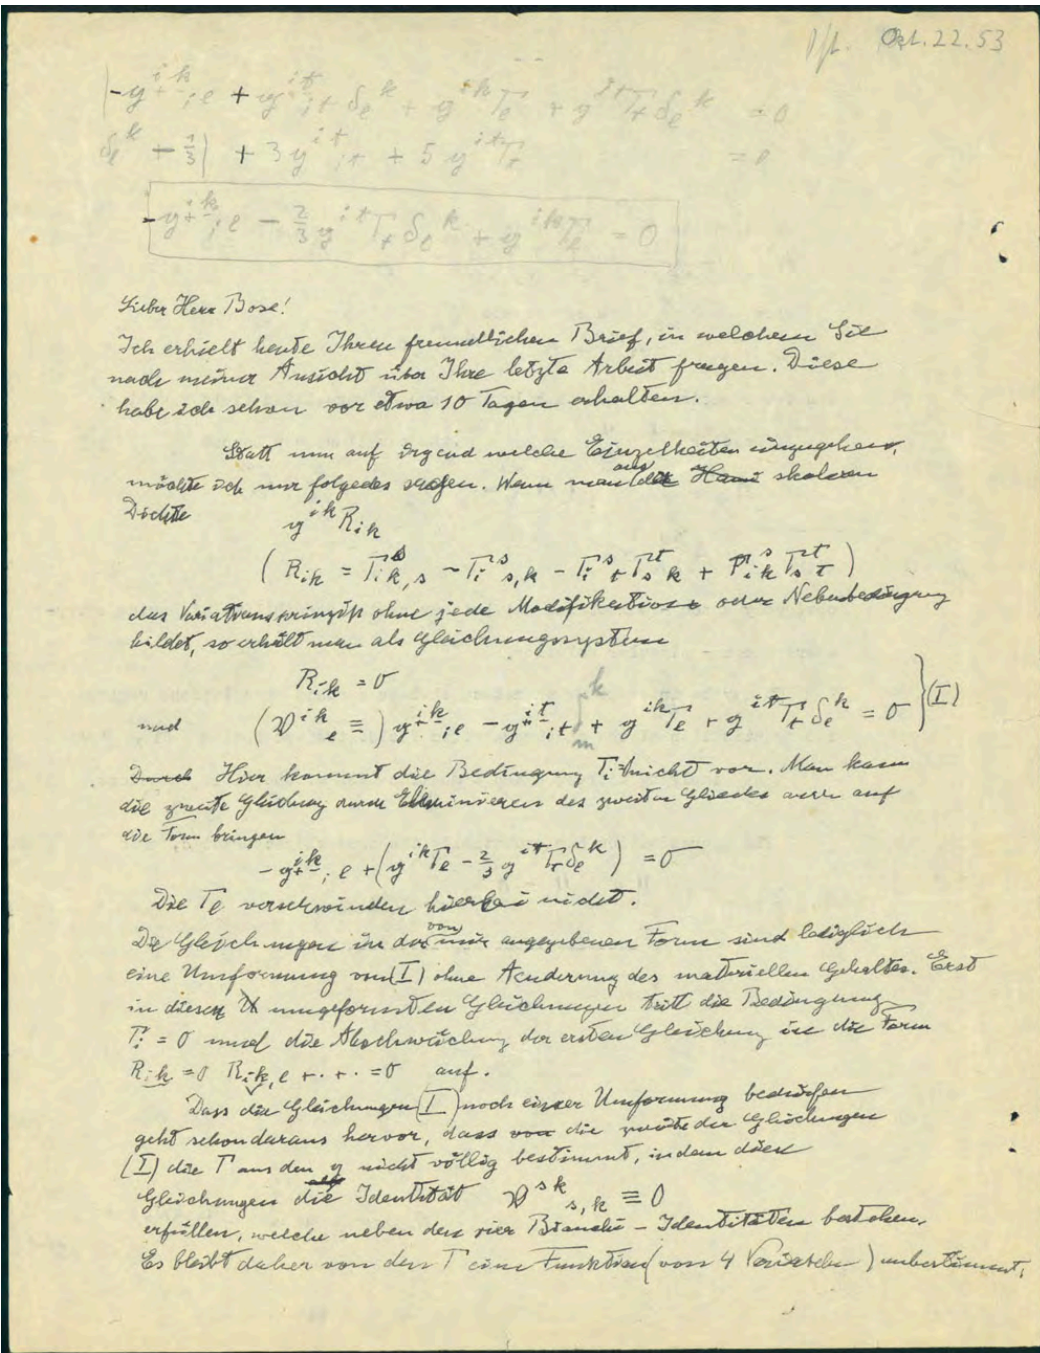 Oct. 22. 53
-g^{ik}_{+-;l} + g^{it}_{+-;t} δ_l^k + g^{ik}Γ_l + g^{it}Γ_t δ_l^k = 0
δ_l^k -1/3) + 3g^{it}_{;t} + 5g^{it}Γ_t = 0
-g^{ik}_{+-;l} - 2/3 g^{it}Γ_t δ_l^k + g^{ik}Γ_l = 0
Lieber Herr Bose!
Ich erhielt heute Ihren freundlichen Brief, in welchem Sie
nach meiner Ansicht über Ihre letzte Arbeit fragen. Diese
habe ich schon vor etwa 10 Tagen erhalten.
Statt nun auf irgend welche Einzelheiten einzugehen,
möchte ich nur folgedes sagen. Wenn man aus der skalaren
Dichte g^{ik} R_{ik}
( R_{ik} = Γ_{ik,s}^s - Γ_{is,k}^s - Γ_{it}^s Γ_{sk}^t + Γ_{ik}^s Γ_{st}^t )
das Variationsprinzip ohne jede Modifikation oder Nebenbedingung
bildet, so erhält man als Gleichungssystem
R_{ik} = 0
und (𝔙^{ik}_l ≡) g^{ik}_{+-;l} - g^{it}_{+-;t} δ_l^k + g^{ik}Γ_l + g^{it}Γ_t δ_l^k = 0 } (I)
Hier kommt die Bedingung Γ_i = 0 nicht vor. Man kann
die zweite Gleichung durch Eliminieren des zweiten Gliedes auch auf
die Form bringen
-g^{ik}_{+-;l} + (g^{ik}Γ_l - 2/3 g^{it}Γ_t δ_l^k) = 0
Die Γ_l verschwinden hierbei nicht.
Die Gleichungen in der von mir angegebenen Form sind lediglich
eine Umformung von (I) ohne Aenderung des materiellen Gehaltes. Erst
in diesen umgeformten Gleichungen tritt die Bedingung
Γ_i = 0 und die Abschwächung der ersten Gleichung in die Form
R_{ik} = 0 R_{ik,l} + · + · = 0 auf.
Dass die Gleichungen (I) noch einer Umformung bedürfen
geht schon daraus hervor, dass die zweite der Gleichungen
(I) die Γ aus den g nicht völlig bestimmt, indem diese
Gleichungen die Identität 𝔙^{sk}_{s,k} ≡ 0
erfüllen, welche neben den vier Bianchi - Identitäten bestehen.
Es bleibt daher von den Γ eine Funktion (von 4 Variabeln) unbestimmt.